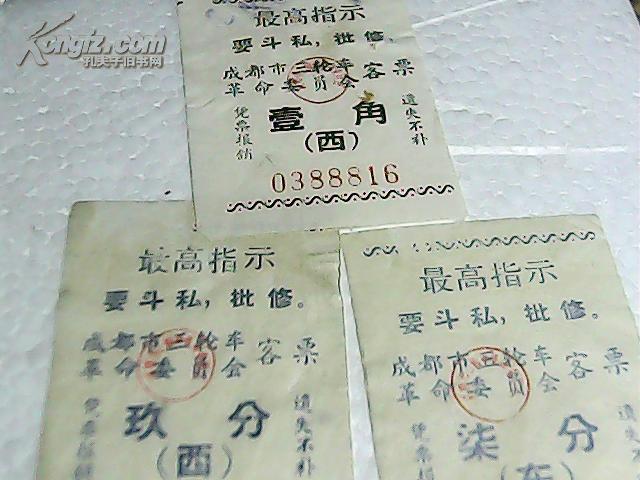 Kongfz.com
孔夫子旧书网
最高指示
要斗私，批修。
成都市三轮车
革命委员会
客票
凭票报销
壹角
(西)
遗失不补
0388816
最高指示
要斗私，批修。
成都市三轮车
革命委员会
客票
凭票报销
玖分
(西)
遗失不补
最高指示
要斗私，批修。
成都市三轮车
革命委员会
客票
凭票报
柒分
(东)
遗失不补